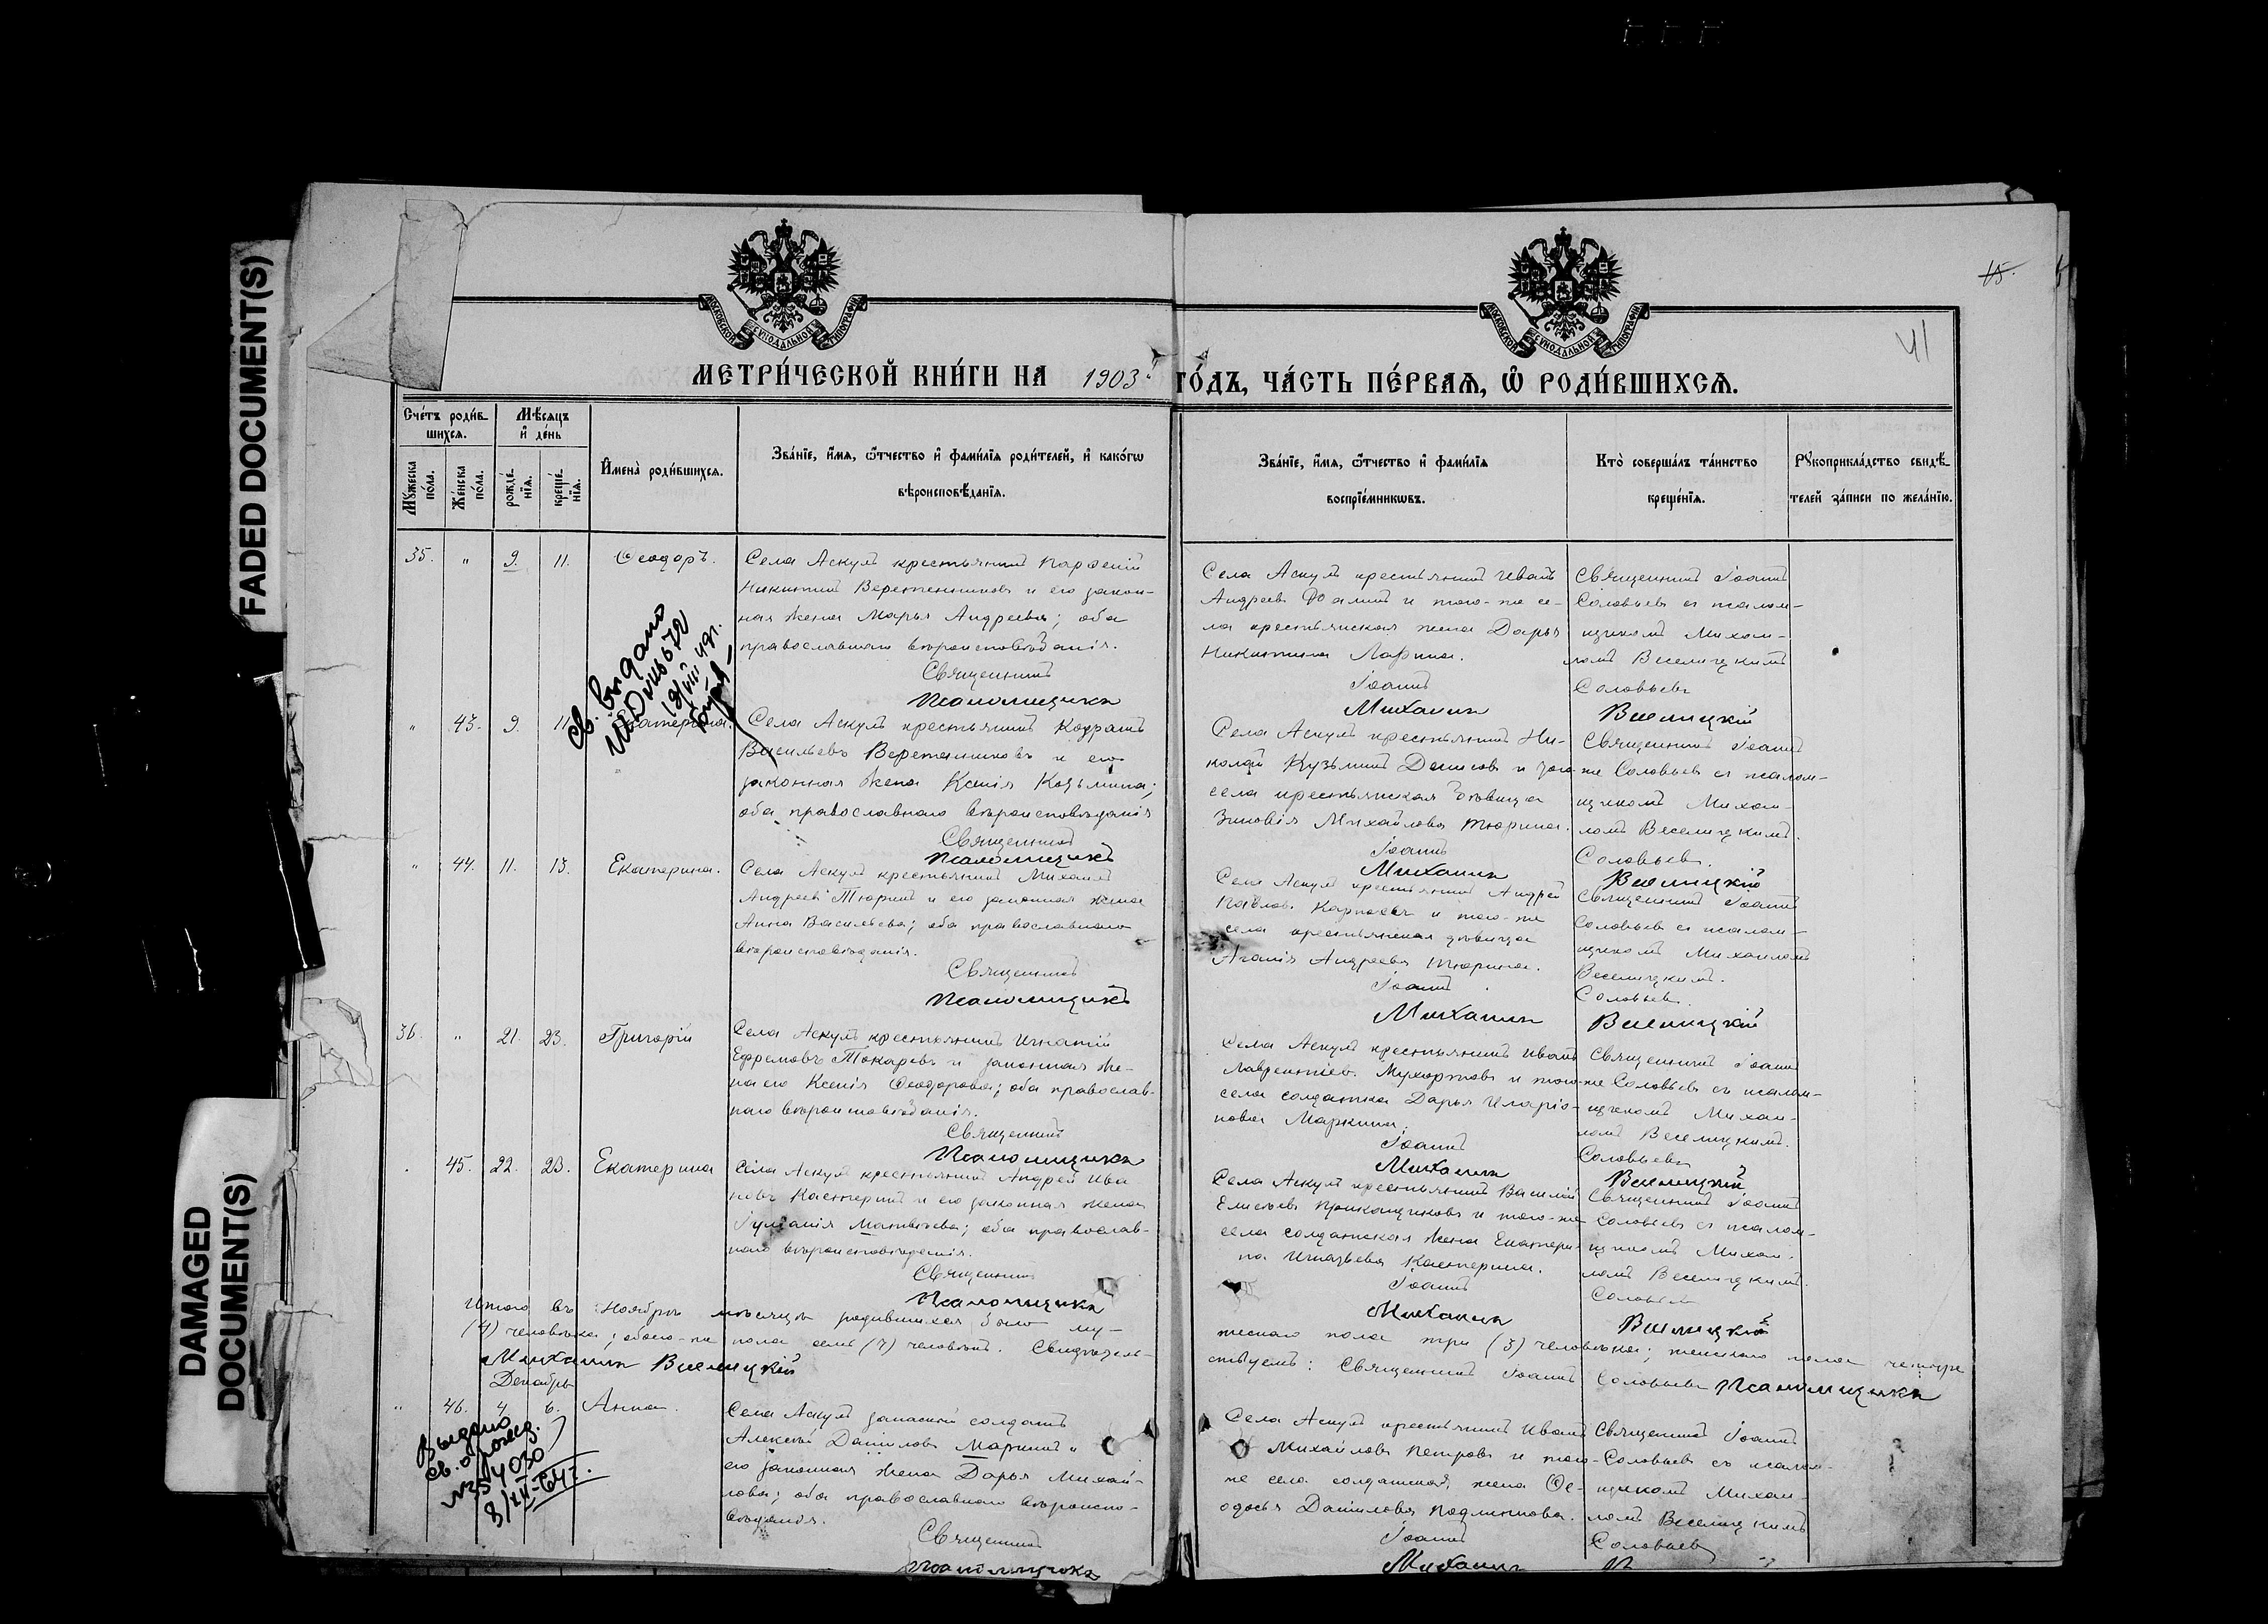 FADED DOCUMENT(S)
DAMAGED
DOCUMENT(S)
15.
41
МОСКОВСКОЙ СУНОДАЛЬНОЙ ТИПОГРАФІИ
МОСКОВСКОЙ СУНОДАЛЬНОЙ ТИПОГРАФІИ
МЕТРИ́ЧЕСКОЙ КНИ́ГИ НА 1903й ГО́ДЪ, ЧА́СТЬ ПЕ́РВАЯ, Ѡ҆ РОДИ́ВШИХСЯ.
Сче́тъ роди́в-
шихся.
Мѣ́сяцъ
и҆ де́нь
Му́жеска
по́ла.
Же́нска
по́ла.
рожде́-
нїя.
креще́-
нїя.
И҆мена̀ роди́вшихся.
Зва́нїе, и҆́мя, ѻ҆́тчество и҆ фами́лїя роди́телей, и҆ како́гѡ
вѣроисповѣ́данїя.
Зва́нїе, и҆́мя, ѻ҆́тчество и҆ фами́лїя
воспрїе́мникѡвъ.
Кто̀ соверша́лъ та́инство
креще́нїя.
Рꙋкоприкла́дство свидѣ́-
телей за́писи по жела́нїю.
35. " 9. 11. Ѳеодоръ.
Села Аскулъ крестьянинъ Парѳеній
Никитинъ Веретенниковъ и его закон-
ная жена Марья Андреева; оба
православнаго вѣроисповѣданія.
Священникъ
Псаломщикъ
Села Аскулъ крестьянинъ Иванъ
Андреевъ и того-же се-
ла крестьянская жена Дарья
Никитина Ларина.
Іоаннъ
Михаилъ
Священникъ Іоаннъ
Соловьевъ съ псалом-
щикомъ Михаи-
ломъ Веселицкимъ
Соловьевъ
Веселицкій
св. выдано
19/VIII 49г.
" 43. 9. 11. Екатерина.
Села Аскулъ крестьянинъ Кодратъ
Васильевъ Веретенниковъ и его
законная жена Ксенія Козьмина;
оба православнаго вѣроисповѣданія
Священникъ
Псаломщикъ
Села Аскулъ крестьянинъ Ни-
колай Кузьминъ Денисовъ и того-же
села крестьянская дѣвица
Зиновія Михайлова Тюрина.
Іоаннъ
Михаилъ
Священникъ Іоаннъ
Соловьевъ съ псалом-
щикомъ Михаи-
ломъ Веселицкимъ.
Соловьевъ.
Веселицкій
" 44. 11. 13. Екатерина.
Села Аскулъ крестьянинъ Михаилъ
Андреевъ Тюринъ и его законная жена
Анна Васильева; оба православнаго
вѣроисповѣданія.
Священникъ
Псаломщикъ
Села Аскулъ крестьянинъ Андрей
Павловъ Карпѣевъ и того-же
села крестьянская дѣвица
Агапія Андреева Тюрина.
Іоаннъ
Михаилъ
Священникъ Іоаннъ
Соловьевъ съ псалом-
щикомъ Михаиломъ
Веселицкимъ.
Соловьевъ.
Веселицкій
36. " 21. 23. Григорій
Села Аскулъ крестьянинъ Игнатій
Ефремовъ Токаревъ и законная же-
на его Ксенія Ѳеодорова; оба православ-
наго вѣроисповѣданія.
Священникъ
Псаломщикъ
Села Аскулъ крестьянинъ Иванъ
Лаврентіевъ Мухортовъ и того-же
села солдатка Дарья Иларіо-
нова Маркина.
Іоаннъ
Михаилъ
Священникъ Іоаннъ
Соловьевъ съ псалом-
щикомъ Михаи-
ломъ Веселицкимъ.
Соловьевъ
Веселицкій
45. 22. 23. Екатерина
Села Аскулъ крестьянинъ Андрей Ива-
новъ Кастеринъ и его законная жена
Іуліанія Матвѣева; оба православ-
наго вѣроисповѣданія.
Священникъ
Псаломщикъ
Села Аскулъ крестьянинъ Василій
Елисѣевъ Прикащиковъ и того-же
села солдатская жена Екатери-
на Игнатьева Кастерина.
Іоаннъ
Михаилъ
Священникъ Іоаннъ
Соловьевъ съ псалом-
щикомъ Михаи-
ломъ Веселицкимъ.
Соловьевъ
Веселицкій
Итого въ Ноябрѣ мѣсяцѣ родившихся было му-
жескаго пола три (3) человѣка; женскаго пола четыре
(4) человѣка; обоего-же пола семь (7) человѣкъ. Свидѣтель-
ствуемъ: Священникъ Іоаннъ Соловьевъ Псаломщикъ
Михаилъ Веселицкій
Декабрь
" 46. 4. 6. Анна.
Села Аскулъ запасной солдатъ
Алексѣй Даниловъ Маркинъ и
его законная жена Дарья Михай-
лова; оба православнаго вѣроиспо-
вѣданія.
Священникъ
Псаломщикъ
Села Аскулъ крестьянинъ Иванъ
Михайловъ Петровъ и того-
же села солдатская жена Ѳе-
одосья Данилова Подлипнова.
Іоаннъ
Михаилъ
Священникъ Іоаннъ
Соловьевъ съ псалом-
щикомъ Михаи-
ломъ Веселицкимъ
Соловьевъ
Выдано
св. о рожд.
8/XII-64г.